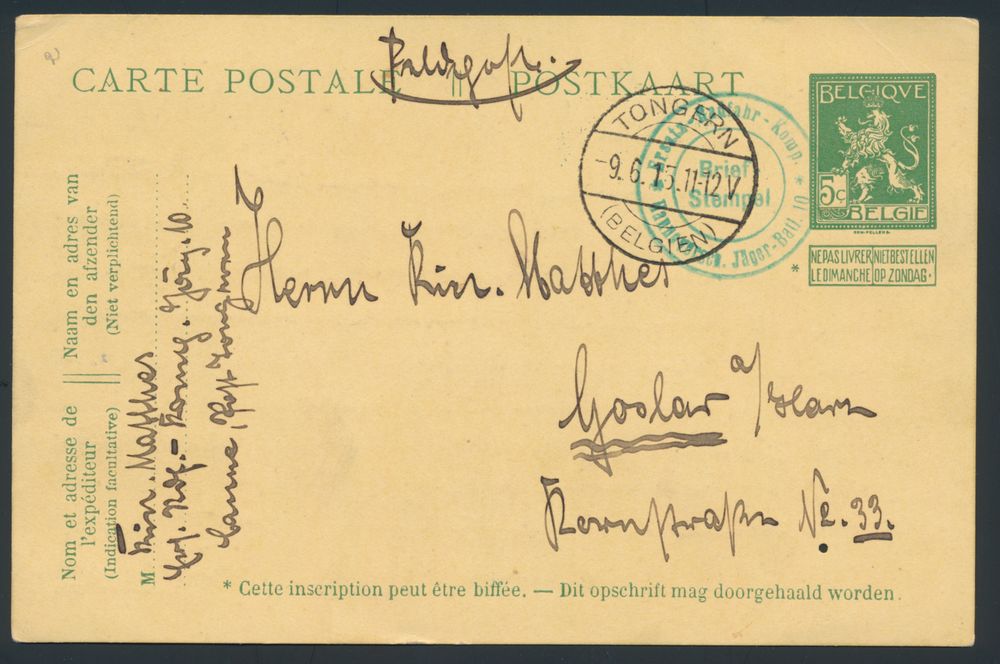 Feldpost.
CARTE POSTALE POSTKAART
BELGIQVE
5c
BELGIË
NE PAS LIVRER LE DIMANCHE
NIET BESTELLEN OP ZONDAG.
*
TONGERN
-9.6.15.11-12V
(BELGIEN)
Ersatz Radfahr-Komp. *
Brief
Stempel
Jäger-Batl. 10
Herrn Kurt. Matthes
Goslar a/Harz
Kornstraße No. 33.
Naam en adres van
den afzender
(Niet verplichtend)
Nom et adresse de
l'expéditeur
(Indication facultative)
M
Matthes
Ers. Rdf.-Komp. Jäg. 10
Canne, Post Tongern
* Cette inscription peut être biffée. — Dit opschrift mag doorgehaald worden.